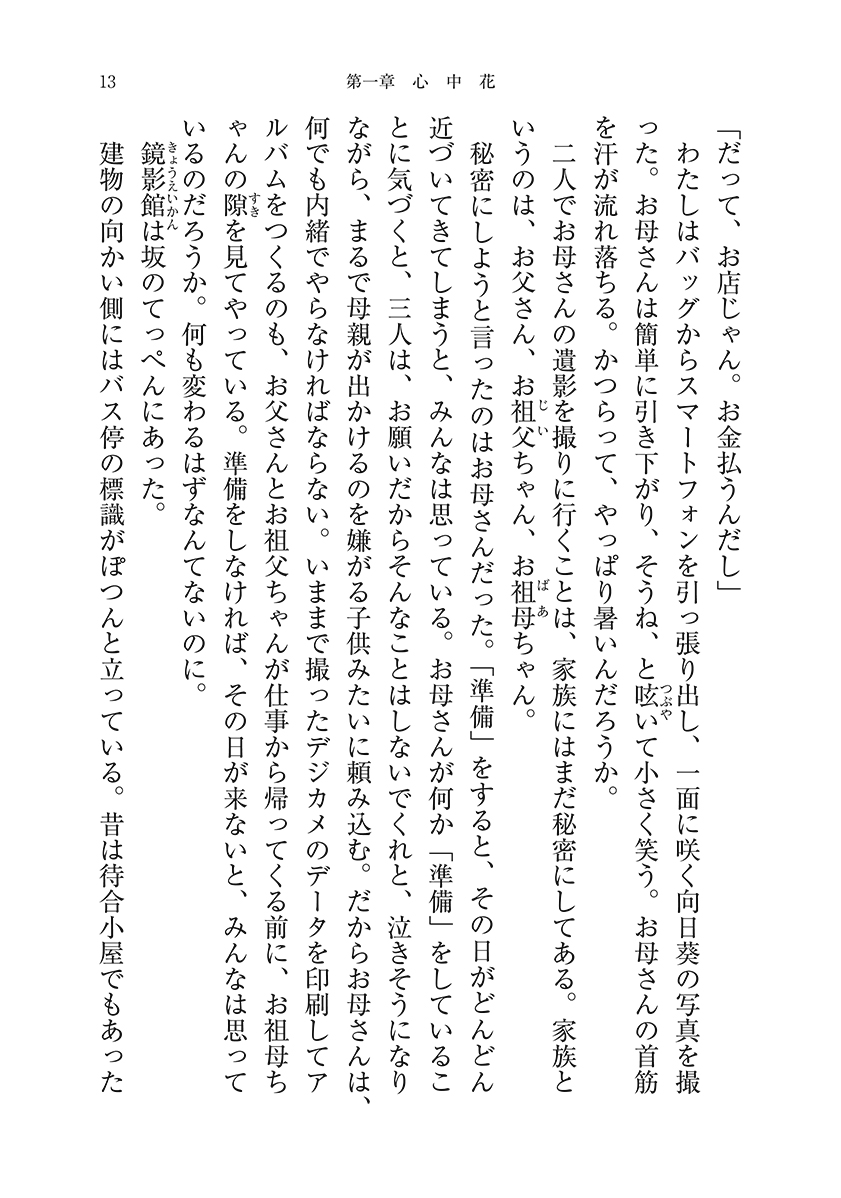 13
第一章 心中花
「だって、お店じゃん。お金払うんだし」
わたしはバッグからスマートフォンを引っ張り出し、一面に咲く向日葵の写真を撮
った。お母さんは簡単に引き下がり、そうね、と呟いて小さく笑う。お母さんの首筋
つぶや
を汗が流れ落ちる。かつらって、やっぱり暑いんだろうか。
二人でお母さんの遺影を撮りに行くことは、家族にはまだ秘密にしてある。家族と
いうのは、お父さん、お祖父ちゃん、お祖母ちゃん。
じい
ばあ
秘密にしようと言ったのはお母さんだった。「準備」をすると、その日がどんどん
近づいてきてしまうと、みんなは思っている。お母さんが何か「準備」をしているこ
とに気づくと、三人は、お願いだからそんなことはしないでくれと、泣きそうになり
ながら、まるで母親が出かけるのを嫌がる子供みたいに頼み込む。だからお母さんは、
何でも内緒でやらなければならない。いままで撮ったデジカメのデータを印刷してア
ルバムをつくるのも、お父さんとお祖父ちゃんが仕事から帰ってくる前に、お祖母ち
ゃんの隙を見てやっている。準備をしなければ、その日が来ないと、みんなは思って
すき
いるのだろうか。何も変わるはずなんてないのに。
鏡影館は坂のてっぺんにあった。
きょうえいかん
建物の向かい側にはバス停の標識がぽつんと立っている。昔は待合小屋でもあった